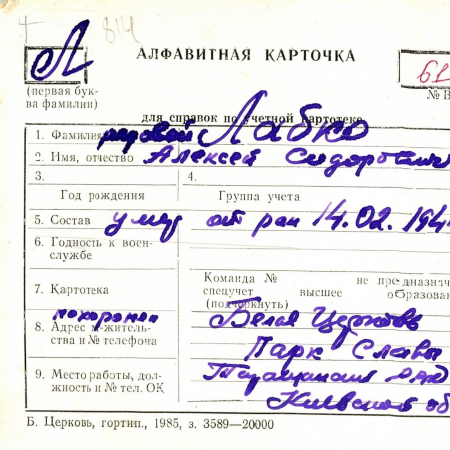 814
Л
АЛФАВИТНАЯ КАРТОЧКА
61
(первая бук-
ва фамилии)
№ В
для справок по учетной картотеке
1. Фамилия рядовой Лабко
2. Имя, отчество Алексей Сидорович
3. 4.
Год рождения Группа учета
5. Состав умер от ран 14.02.194
6. Годность к воен-
службе
Команда № не предназнач
7. Картотека спецучет высшее образова
(подчеркнуть)
похоронен Белая Церковь
8. Адрес м-житель-
ства и № телефона Парк Славы
9. Место работы, дол-
жность и № тел. ОК
Киевской об
Б. Церковь, гортип., 1985, з. 3589—20000